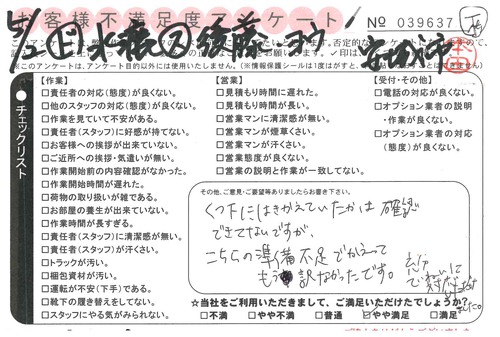 お客様不満足度アンケート!
No 039637
※このアンケートは、アンケート目的以外には使用いたしません。
チェックリスト
【作業】
□責任者の対応(態度)が良くない。
□他のスタッフの対応(態度)が良くない。
□作業を見ていて不安がある。
□責任者(スタッフ)に好感が持てない。
□お客様への挨拶が出来ていない。
□ご近所への挨拶・気遣いが無い。
□作業開始前の内容確認がなかった。
□作業開始時間が遅れた。
□荷物の取り扱いが雑である。
□お部屋の養生が出来ていない。
□作業時間が長すぎる。
□責任者(スタッフ)に清潔感が無い。
□責任者(スタッフ)が汗くさい。
□トラックが汚い。
□梱包資材が汚い。
□運転が不安(下手)である。
□靴下の履き替えをしてない。
□スタッフにやる気がみられない。
【営業】
□見積もり時間に遅れた。
□見積もり時間が長い。
□営業マンに清潔感が無い。
□営業マンが煙草くさい。
□営業マンが汗くさい。
□営業態度が良くない。
□営業の説明と作業が一致してない。
【受付・その他】
□電話の対応が良くない。
□オプション業者の説明
・作業が良くない。
□オプション業者の対応
(態度)が良くない。
その他、ご意見・ご要望等ありましたらお書き下さい。
くつ下にはきかえていたかは確認
できてないですが、
こちらの準備不足でかえって
もうし訳なかったです。
☆当社をご利用いただきまして、ご満足いただけたでしょうか?
□不満 □やや不満 □普通 □やや満足 □満足